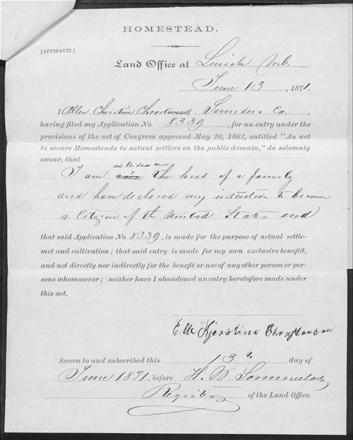 HOMESTEAD.
[AFFIDAVIT.]
Land Office at Lincoln Neb.
June 13, 1871.
I, Christine Saunders Co.
having filed my Application No. 8339, for an entry under the
provisions of the act of Congress approved May 20, 1862, entitled "An act
to secure Homesteads to actual settlers on the public domain," do solemnly
swear, that
I am the head of a family
and have declared my intention to become
a Citizen of the United States and
that said Application No 8339, is made for the purpose of actual settle-
ment and cultivation; that said entry is made for my own exclusive benefit,
and not directly nor indirectly for the benefit or use of any other person or per-
sons whomsoever; neither have I abandoned an entry heretofore made under
this act.
Sworn to and subscribed this 13th day of
June 1871, before
Register of the Land Office.